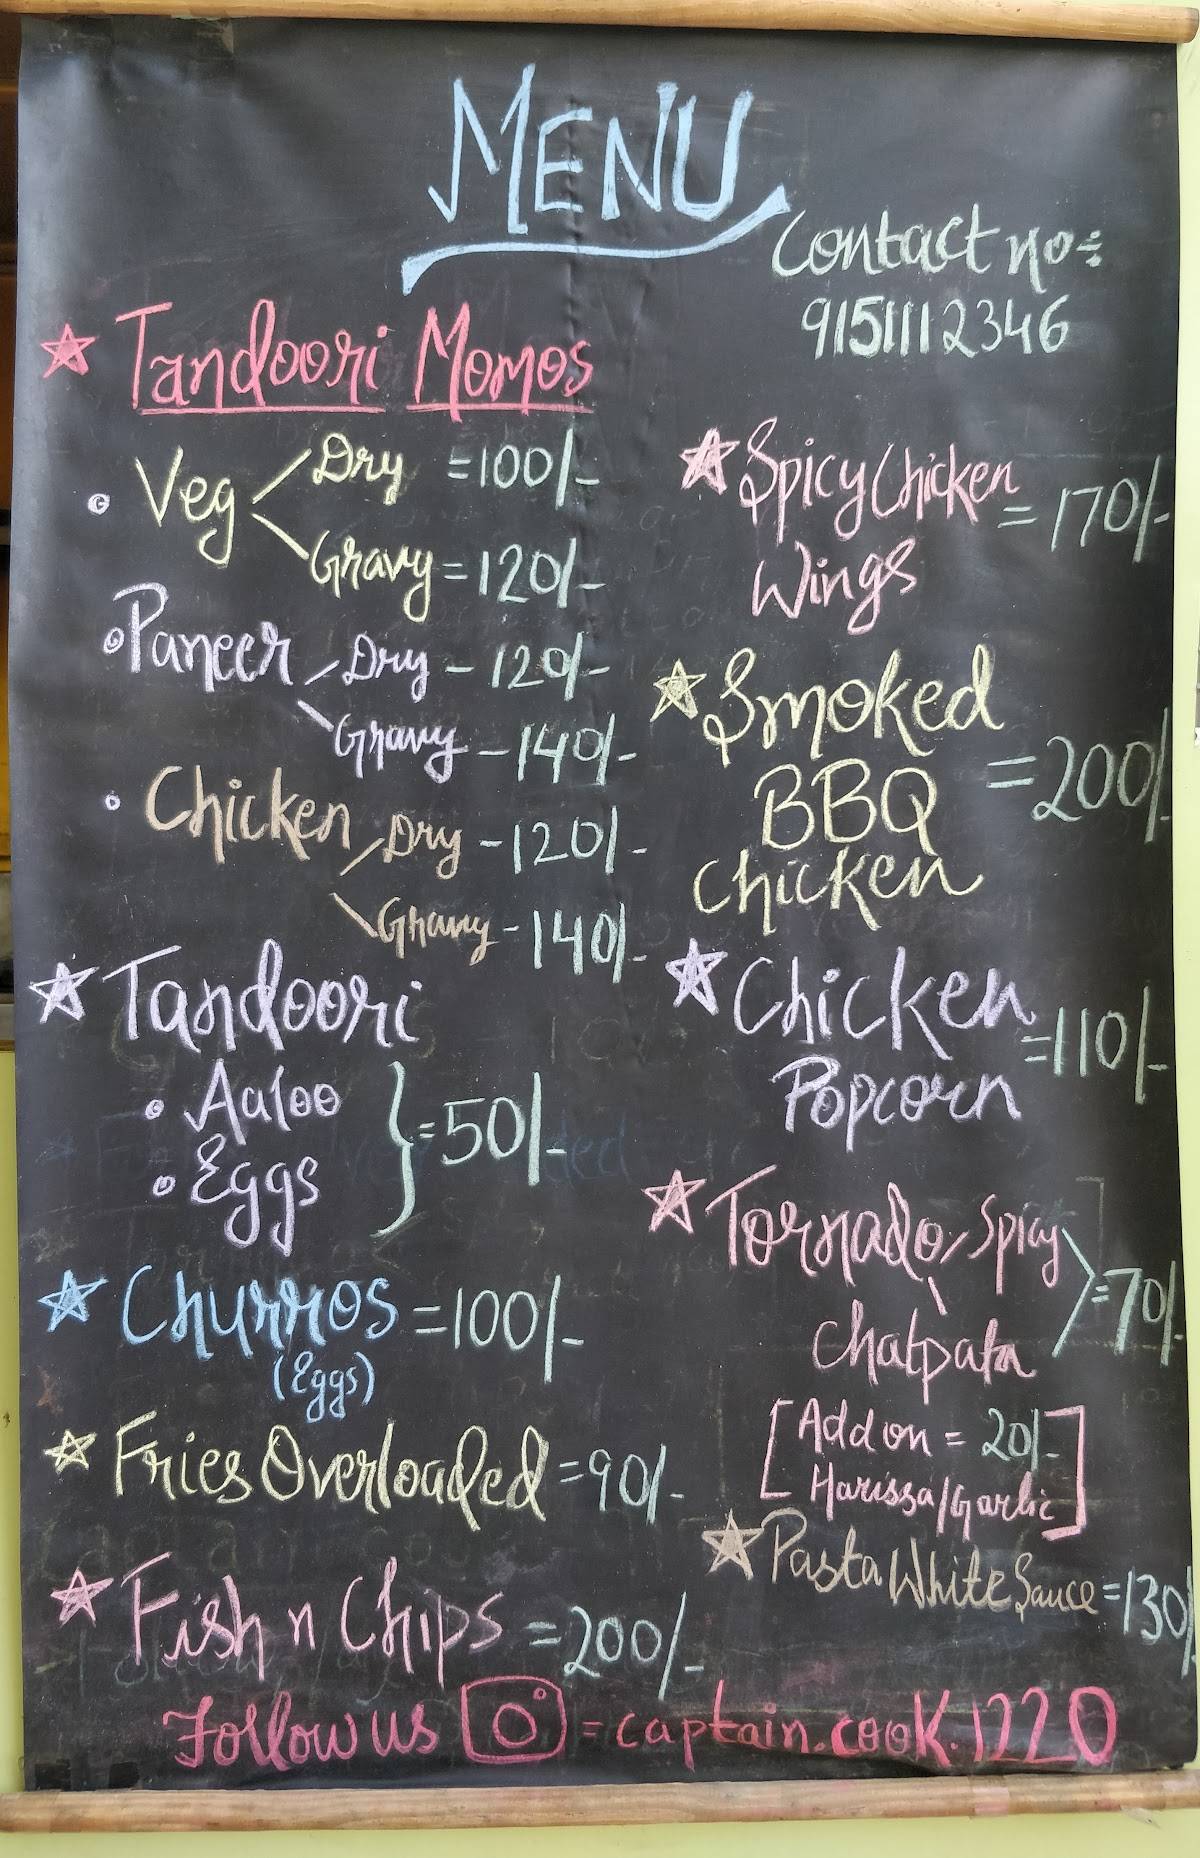 MENU
Contact no:
9151112346
Tandoori Momos
Veg Dry =100/-
Gravy =120/-
Paneer Dry - 120/-
Gravy - 140/-
Chicken Dry - 120/-
Gravy - 140/-
Tandoori
Aaloo
Eggs
} = 50/-
Churros =100/-
(Eggs)
Fries Overloaded =90/-
Fish n Chips =200/-
Spicy Chicken
Wings
=170/-
Smoked
BBQ
Chicken
=200/-
Chicken
Popcorn
=110/-
Tornado Spicy
Chatpata
=70/-
[Add on = 20/-
Harissa/Garlic]
Pasta White Sauce =130/
Follow us = captain.cook.1220